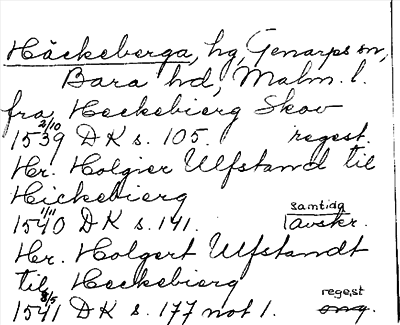 Häckeberga, hg, Genarps sn,
Bara hd, Malm. l.
fra Heckebierg Skov
1539 2/10 DK s. 105. regest.
Hr. Holgier Ulfstand til
Hickebierg
1540 1/11 DK s. 141. samtida avskr.
Hr. Holgert Ulfstandt
til Heckebierg
1541 8/5 DK s. 177 not 1. regest orig.